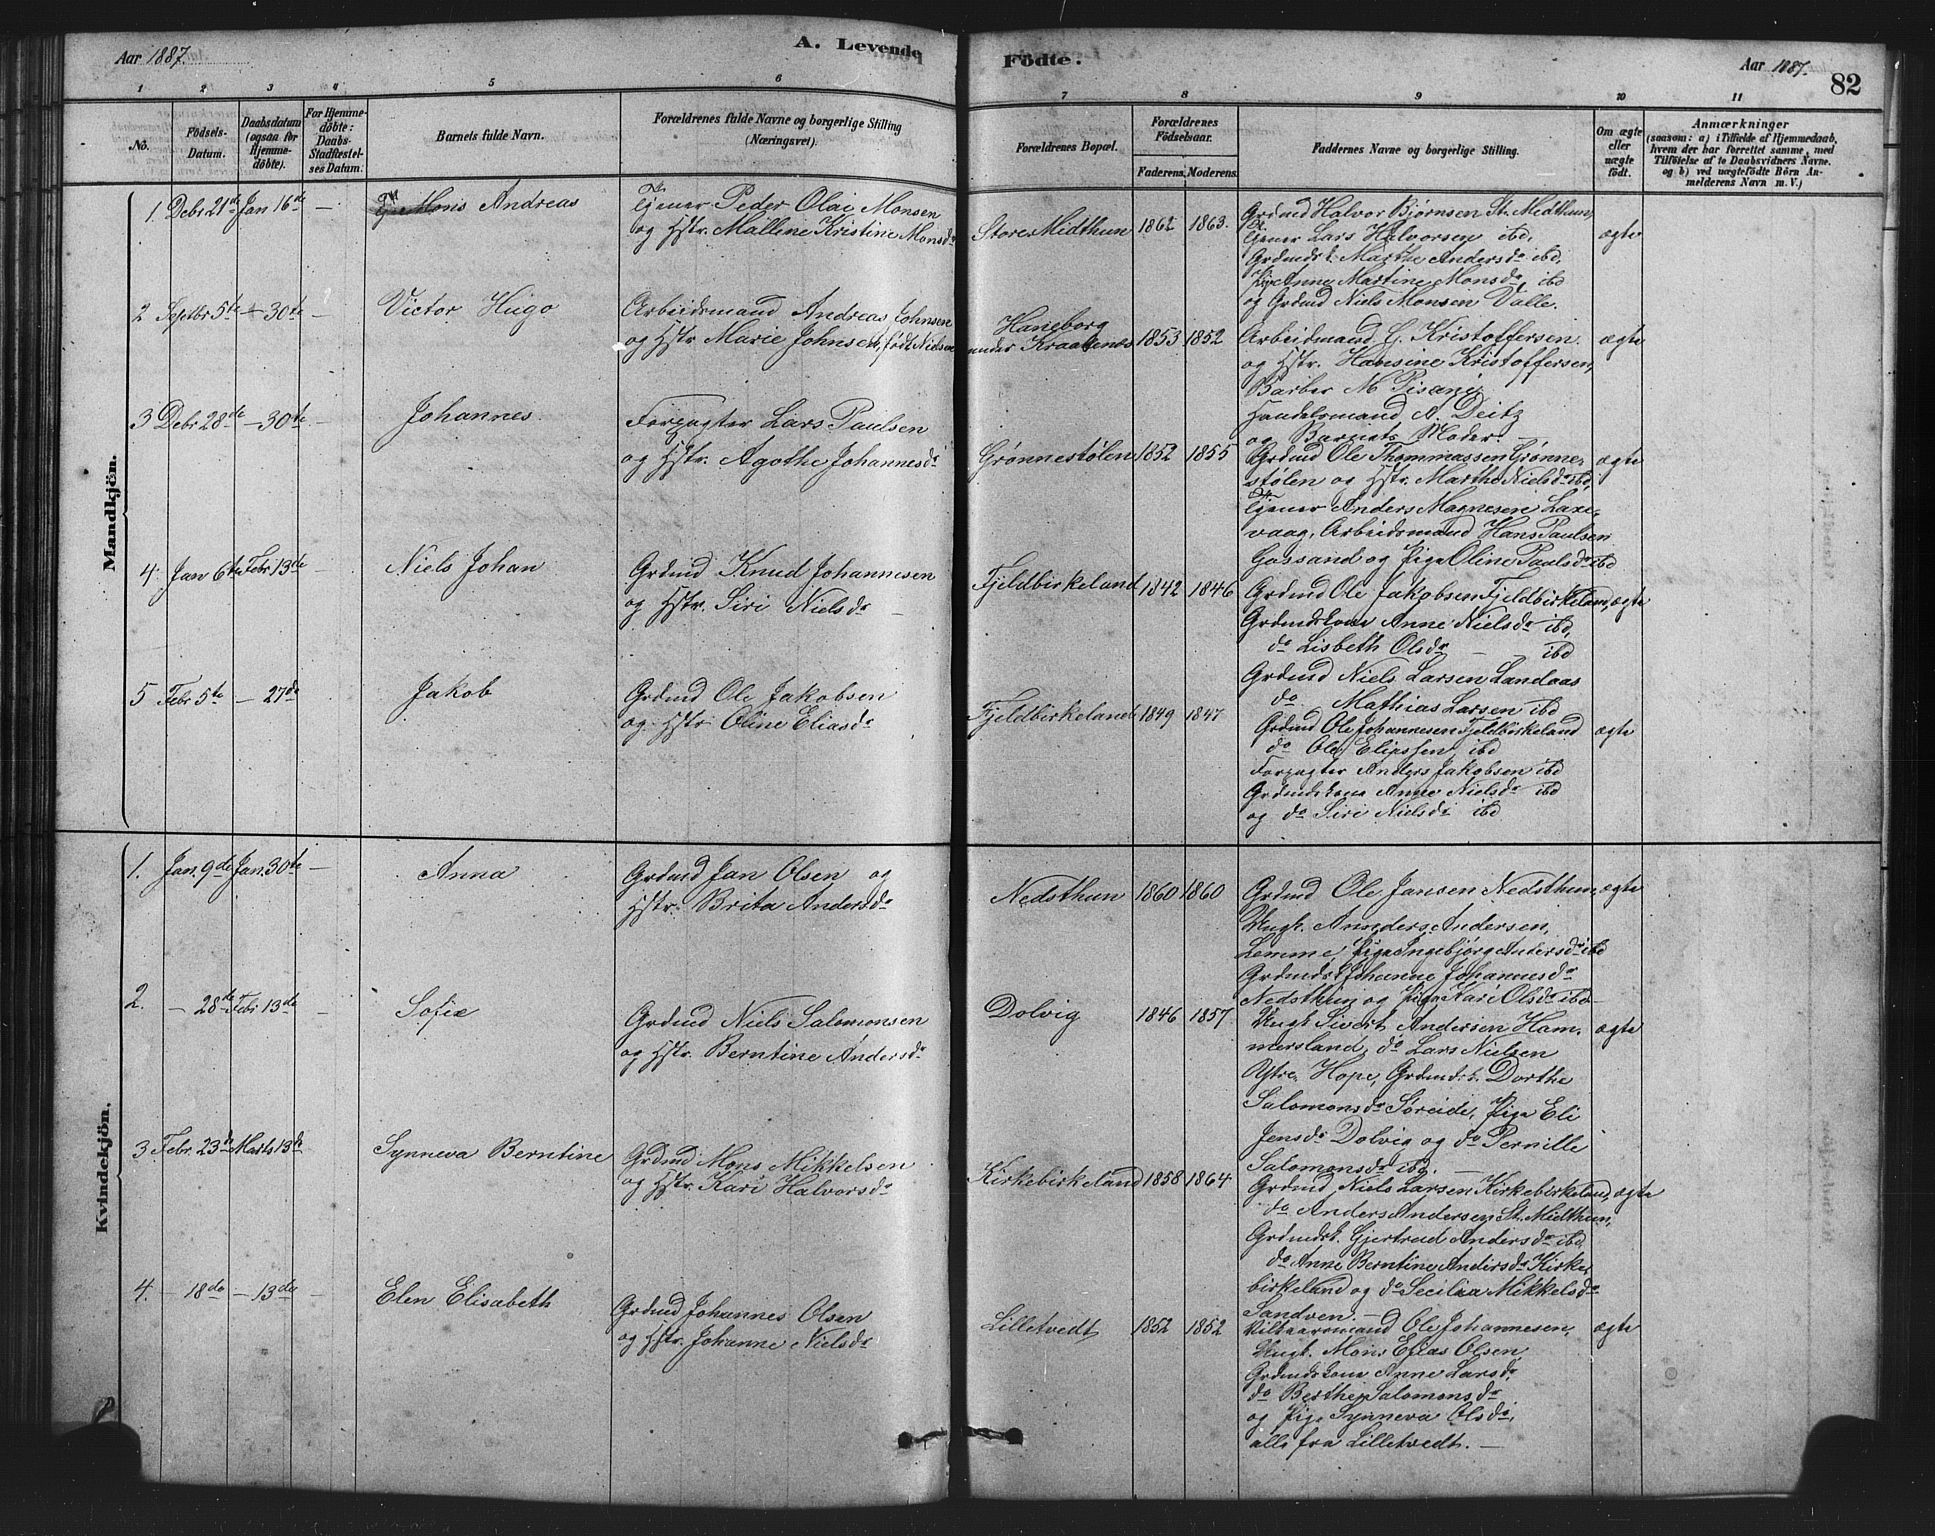 Aar 1887.
A. Levende
Födte.
Aar 1887.
82
1 2 3 4 5 6 7 8 9 10 11
No.
Födsels-
Datum.
Daabsdatum
(ogsaa for
Hjemme-
döbte).
For Hjemme-
döbte:
Daabs-
Stadfæstel-
ses Datum.
Barnets fulde Navn.
Forældrenes fulde Navne og borgerlige Stilling
(Næringsvei).
Forældrenes Bopæl.
Forældrenes
Födselsaar.
Faderens. Moderens.
Faddernes Navne og borgerlige Stilling.
Om ægte
eller
uægte
födt.
Anmærkninger
(saasom: a) i Tilfælde af Hjemmedaab,
hvem der har forrettet samme, med
Tilföielse af to Daabsvidners Navne.
og b) ved uægtefödte Börn An-
melderens Navn m. V.)
Mandkjön.
1. Debr 21de Jan 16de —
Mons Andreas
Tjener Peder Olai Monsen
og Hstr. Mallene Kristine Monsdr
Store Midthun 1862 1863.
Grdmd Halvor Bjørnsen St. Midthun,
Tjener Lars Halvorsen ibd,
Grdmdsk. Marthe Andersdr ibd,
Pige Anne Martine Monsdr ibd
og Grdmd Niels Monsen Valle.
ægte
2 Septbr 5te — 30te —
Victor Hugo
Arbeidsmand Andreas Johnsen
og Hstr Marie Johnsen, født Nielsen
Haneborg
under Kraakenæs 1853 1852
Arbeidmand C. Kristoffersen
og Hstr. Hansine Kristoffersen,
Barber M Pisani,
Handelsmand A. Deitz
og Barnets Moder. —
ægte
3 Debr 28de — 30te —
Johannes.
Forpagter Lars Paulsen
og Hstr. Agothe Johannesdr
Grønnestølen 1852 1855
Grdmd Ole Thommassen Grønne-
stølen og Hstr. Marthe Nielsdr ibd,
Tjener Anders Magnesen Laxe-
vaag, Arbeidsmand Hans Paulsen
Gassand og Pige Oline Paulsdr ibd
ægte
4. Jan 6te Febr 13de —
Niels Johan
Grdmd Knud Johannesen
og Hstr. Siri Nielsdr —
Fjeldbirkeland 1842 1846
Grdmd Ole Jakobsen Fjeldbirkeland,
Grdmdskone Anne Nielsdr ibd,
do Lisbeth Olsdr — — ibd
Grdmd Niels Larsen Landaas
do Mathias Larsen ibd
ægte
5 Febr 5te — 27de
Jakob
Grdmd Ole Jakobsen
og Hstr. Oline Eliasdr
Fjeldbirkeland 1849 1847
Grdmd Ole Johannesen Fjeldbirkeland
do Ole Elipssen, ibd
Forpagter Anders Jakobsen ibd
Grdmdskone Anne Nielsdr ibd
og do Siri Nielsdr ibd
ægte
Kvindekjön.
1. Jan. 9de Jan. 30te —
Anna
Grdmd Jan Olsen og
Hstr. Brita Andersdr
Nedsthun 1860 1860
Grdmd Ole Jansen Nedsthun,
Ungk. Annders Andersen,
Lemme, Pige Ingebjørg Andersdr ibd
Grdmdsk Johanne Johannesdr
Nedsthun og Pige Kari Olsdr ibd —
ægte
2. — 28de Febr 13de —
Sofie
Grdmd Niels Salomonsen
og Hstr. Berntine Andersdr
Dolvig 1846 1857
Ungk. Sivert Andersen Ham-
mersland, do Lars Nielsen
Østre Hope, Grdmdsk. Dorthe
Salomonsdr Søreide, Pige Eli
Jensdr Dolvig og do Pernille
Salomonsdr ibd. —
ægte
3 Febr. 23de Marts 13de
Synneva Berntine
Grdmd Mons Mikkelsen
og Hstr. Kari Halvorsdr
Kirkebirkeland 1858 1864
Grdmd Niels Larsen Kirkebirkeland,
do Anders Andersen St. Midthun,
Grdmdsk. Gjertrud Andersdr ibd,
do Anne Berntine Andersdr Kirke-
birkeland og do Seciliaa Mikkelsdr
Sandven. —
ægte
4. — 18de — 13de —
Elen Elisabeth
Grdmd Johannes Olsen
og Hstr. Johanne Nielsdr
Lilletvedt 1852 1852
Vilkaarsmand Ole Johannesen,
Ungk. Mons Elias Olsen,
Grdmdskone Anne Larsdr
do Berthe Salomonsdr
og Pige Synneva Olsdr,
alle fra Lilletvedt. —
ægte